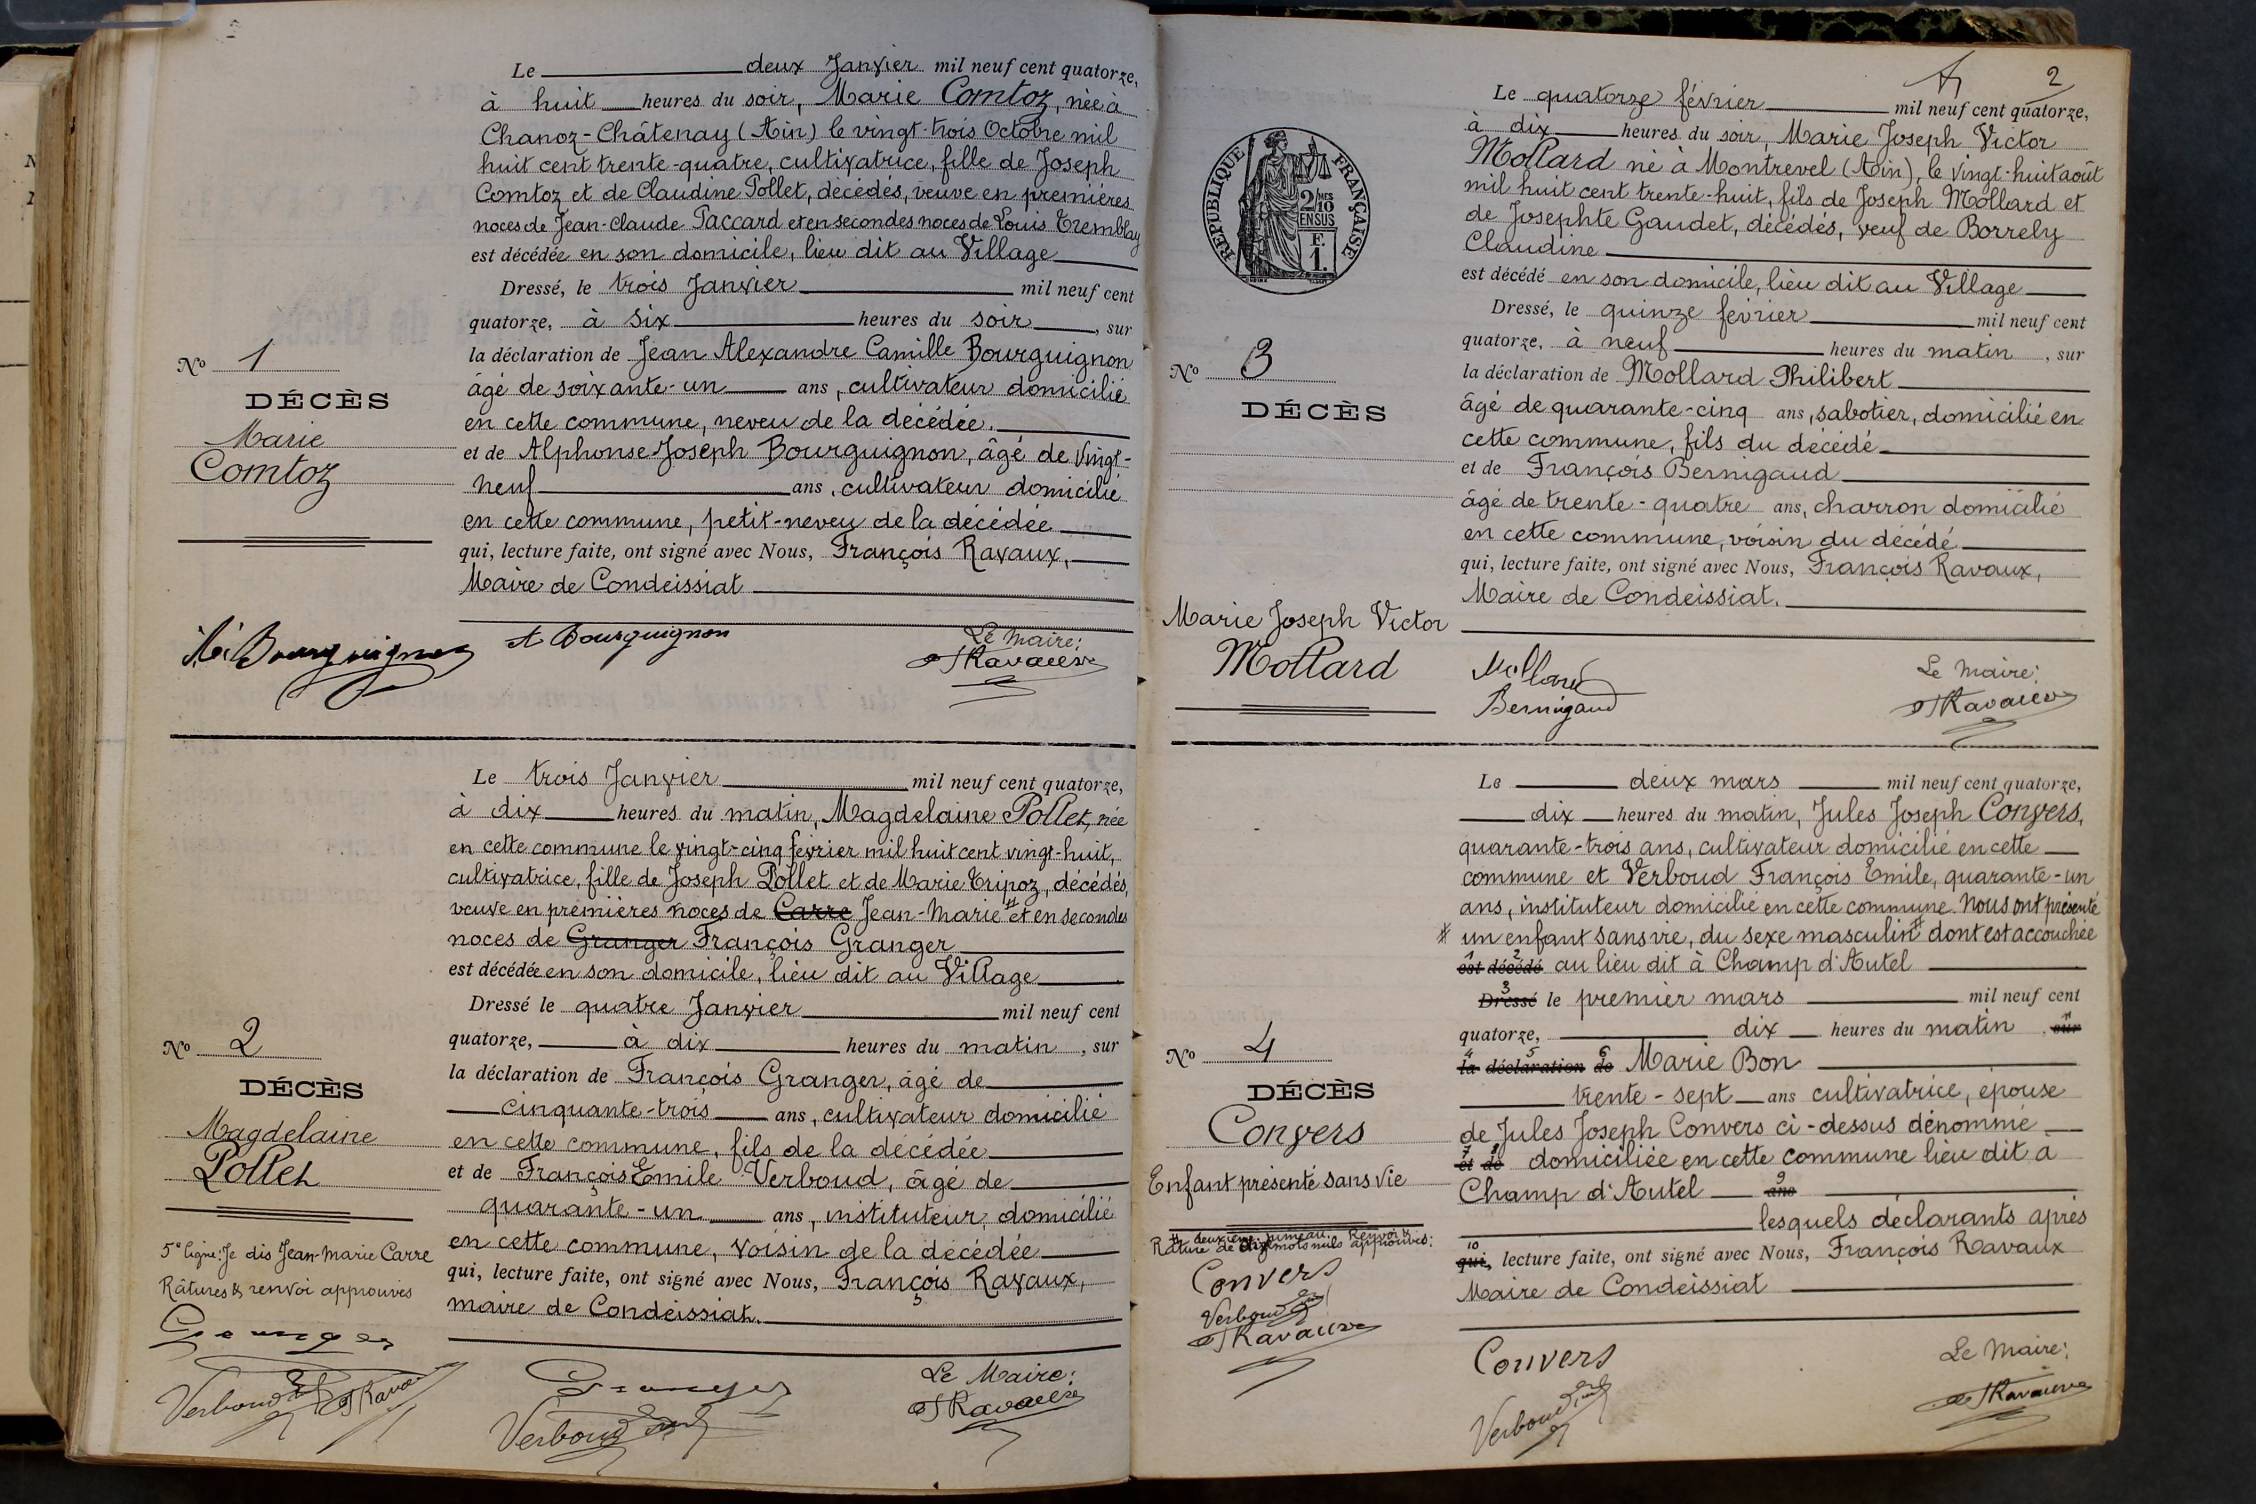 Le deux Janvier mil neuf cent quatorze,
à huit heures du soir, Marie Comtoz, née à
Chanoz-Châtenay (Ain) le vingt-trois Octobre mil
huit cent trente-quatre, cultivatrice, fille de Joseph
Comtoz et de Claudine Pollet, décédés, veuve en premières
noces de Jean-Claude Paccard et en secondes noces de Louis Tremblay
est décédée en son domicile, lieu dit au Village
Dressé, le trois Janvier mil neuf cent
quatorze, à six heures du soir, sur
la déclaration de Jean Alexandre Camille Bourguignon
âgé de soixante-un ans, cultivateur domicilié
en cette commune, neveu de la décédée.
et de Alphonse Joseph Bourguignon, âgé de vingt-
neuf ans, cultivateur domicilié
en cette commune, petit-neveu de la décédée
qui, lecture faite, ont signé avec Nous, François Ravaux,
Maire de Condeissiat
No 1
DÉCÈS
Marie
Comtoz
Bourguignon
A Bourguignon
Le Maire:
Ravaux
Le trois Janvier mil neuf cent quatorze,
à dix heures du matin, Magdelaine Pollet, née
en cette commune le vingt-cinq février mil huit cent vingt-huit,
cultivatrice, fille de Joseph Pollet et de Marie Tripoz, décédés,
veuve en premières noces de Carre Jean-Marie # et en secondes
noces de Granger François Granger
est décédée en son domicile, lieu dit au Village
Dressé le quatre Janvier mil neuf cent
quatorze, à dix heures du matin, sur
la déclaration de François Granger, âgé de
cinquante-trois ans, cultivateur domicilié
en cette commune, fils de la décédée
et de François Emile Verboud, âgé de
quarante-un ans, instituteur, domicilié
en cette commune, voisin de la décédée
qui, lecture faite, ont signé avec Nous, François Ravaux,
maire de Condeissiat.
No 2
DÉCÈS
Magdelaine
Pollet
5e ligne: Je dis Jean-Marie Carre
Râtures & renvoi approuvés
Granger
Verboud
Ravaux
Granger
Verboud
Le Maire:
Ravaux
2
Le quatorze février mil neuf cent quatorze,
à dix heures du soir, Marie Joseph Victor
Mollard né à Montrevel (Ain), le vingt-huit août
mil huit cent trente-huit, fils de Joseph Mollard et
de Josephte Gaudet, décédés, veuf de Borrely
Claudine
est décédé en son domicile, lieu dit au Village
Dressé, le quinze février mil neuf cent
quatorze, à neuf heures du matin, sur
la déclaration de Mollard Philibert
âgé de quarante-cinq ans, sabotier, domicilié en
cette commune, fils du décédé
et de François Bernigaud
âgé de trente-quatre ans, charron domicilié
en cette commune, voisin du décédé
qui, lecture faite, ont signé avec Nous, François Ravaux,
Maire de Condeissiat.
RÉPUBLIQUE FRANÇAISE
2/MES
10
EN SUS
F.
1.
No 3
DÉCÈS
Marie Joseph Victor
Mollard
Mollard
Bernigaud
Le Maire:
Ravaux
Le deux mars mil neuf cent quatorze,
dix heures du matin, Jules Joseph Convers,
quarante-trois ans, cultivateur domicilié en cette
commune et Verboud François Emile, quarante-un
ans, instituteur domicilié en cette commune. Nous ont présenté
# un enfant sans vie, du sexe masculin # dont est accouchée
1 2
est décédé au lieu dit à Champ d'Autel
3
Dressé le premier mars mil neuf cent
quatorze, dix heures du matin, sur
4 5 6
la déclaration de Marie Bon
trente-sept ans cultivatrice, épouse
de Jules Joseph Convers ci-dessus dénommé
7 8
et de domiciliée en cette commune lieu dit à
9
Champ d'Autel ans
lesquels déclarants après
10
qui, lecture faite, ont signé avec Nous, François Ravaux
Maire de Condeissiat
No 4
DÉCÈS
Convers
Enfant présenté sans vie
# deuxième jumeau. Renvoi &
Râture de dix mots nuls approuvés:
Convers
Verboud
Ravaux
Convers
Verboud
Le Maire:
Ravaux